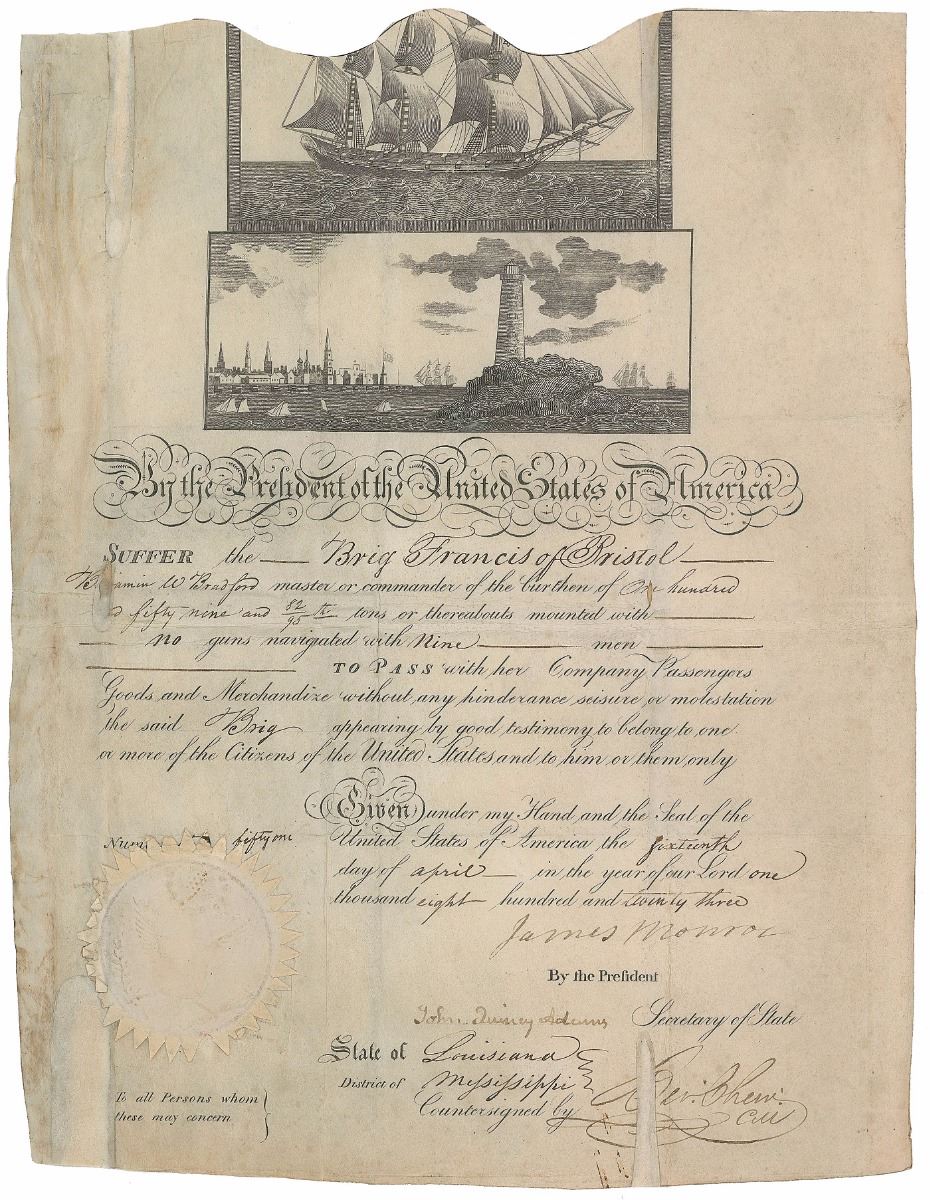 By the President of the United States of America
SUFFER the Brig Francis of Bristol
Benjamin W Bradford master or commander of the burthen of One hundred
fifty nine and 82/95 th tons or thereabouts mounted with
no guns navigated with Nine men
TO PASS with her Company Passengers
Goods and Merchandize without any hinderance seisure or molestation
the said Brig appearing by good testimony to belong to one
or more of the Citizens of the United States and to him or them only
Given under my Hand and the Seal of the
Num fifty one
United States of America the sixteenth
day of april in the year of our Lord one
thousand eight hundred and twenty three
James Monroe
By the President
John Quincy Adams Secretary of State
State of Louisiana
District of Mississippi
Countersigned by Bev. Chew
Coll
To all Persons whom
these may concern